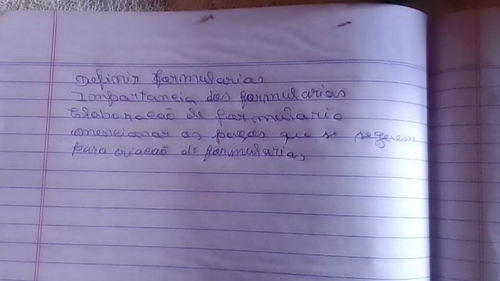 Definir formularias
Importancia dos formularias
Elaboracão de formulario
mencionar as paças que se seguem
para criacão de formularias